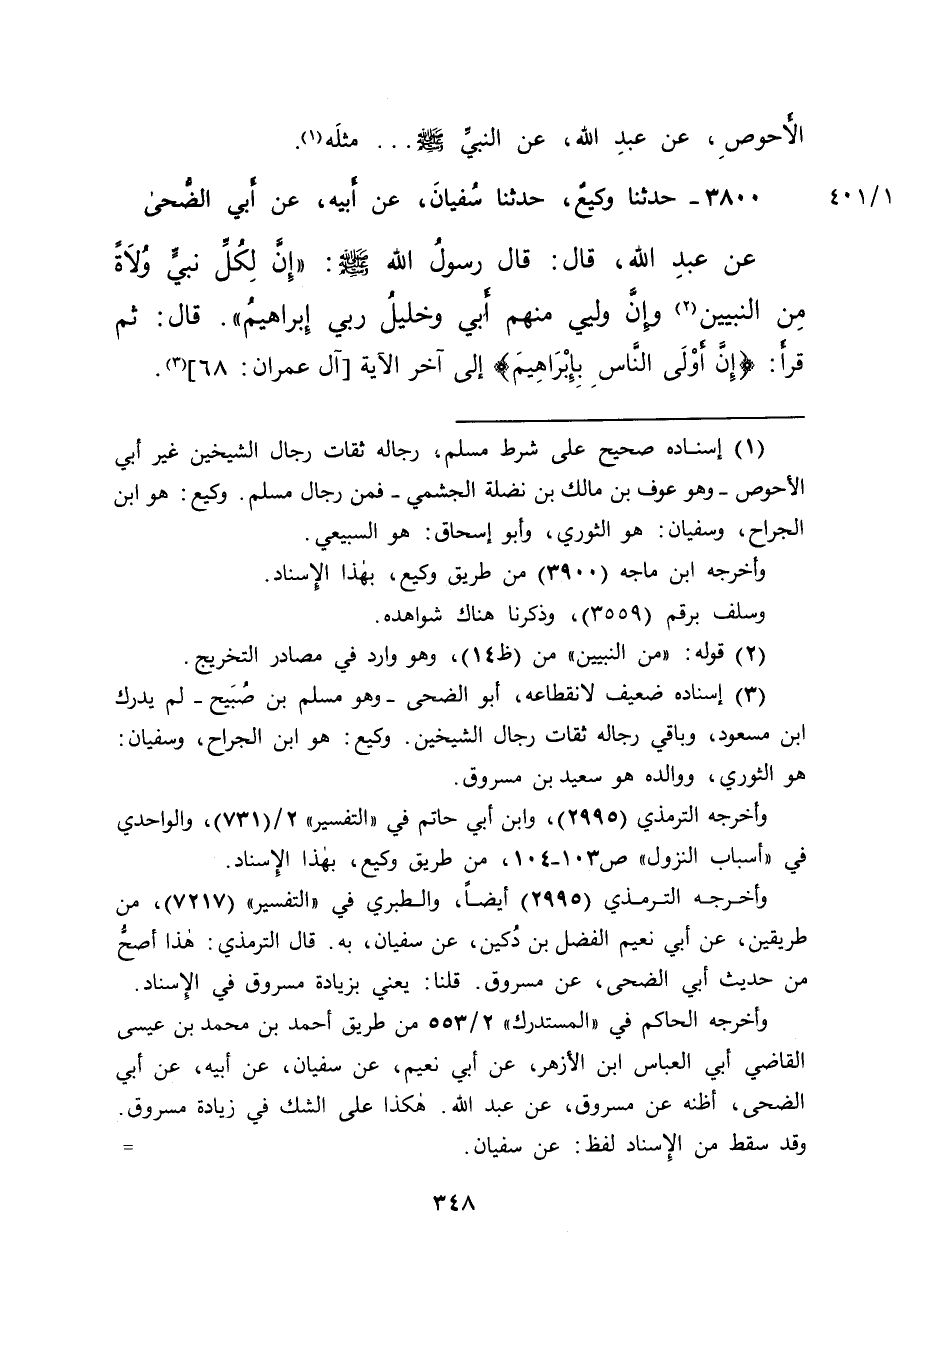 الأَحوصِ، عن عبدِ الله، عن النبيِّ ﷺ ... مثلَه(١).
٤٠١/١
٣٨٠٠ـ حدثنا وكيعٌ، حدثنا سُفيانَ، عن أَبيه، عن أَبي الضُّحىٰ
عن عبدِ الله، قال: قال رسولُ الله ﷺ: «إِنَّ لِكُلِّ نبيٍّ وُلَاةً
مِن النبيين(٢) وإِنَّ وليي منهم أَبي وخليلُ ربي إِبراهيمُ». قال: ثم
قرأَ: ﴿إِنَّ أَوْلَى النَّاسِ بِإِبْرَاهِيمَ﴾ إلى آخر الآية [آل عمران: ٦٨](٣).
(١) إسناده صحيح على شرط مسلم، رجاله ثقات رجال الشيخين غير أبي
الأحوص ـ وهو عوف بن مالك بن نضلة الجشمي ـ فمن رجال مسلم. وكيع: هو ابن
الجراح، وسفيان: هو الثوري، وأبو إسحاق: هو السبيعي.
وأخرجه ابن ماجه (٣٩٠٠) من طريق وكيع، بهٰذا الإِسناد.
وسلف برقم (٣٥٥٩)، وذكرنا هناك شواهده.
(٢) قوله: «من النبيين» من (ظ١٤)، وهو وارد في مصادر التخريج.
(٣) إسناده ضعيف لانقطاعه، أبو الضحى ـ وهو مسلم بن صُبَيح ـ لم يدرك
ابن مسعود، وباقي رجاله ثقات رجال الشيخين. وكيع: هو ابن الجراح، وسفيان:
هو الثوري، ووالده هو سعيد بن مسروق.
وأخرجه الترمذي (٢٩٩٥)، وابن أبي حاتم في «التفسير» ٢/(٧٣١)، والواحدي
في «أسباب النزول» ص١٠٣-١٠٤، من طريق وكيع، بهٰذا الإِسناد.
وأخرجه الترمذي (٢٩٩٥) أيضاً، والطبري في «التفسير» (٧٢١٧)، من
طريقين، عن أبي نعيم الفضل بن دُكين، عن سفيان، به. قال الترمذي: هٰذا أصحُّ
من حديث أبي الضحى، عن مسروق. قلنا: يعني بزيادة مسروق في الإِسناد.
وأخرجه الحاكم في «المستدرك» ٥٥٣/٢ من طريق أحمد بن محمد بن عيسى
القاضي أبي العباس ابن الأزهر، عن أبي نعيم، عن سفيان، عن أبيه، عن أبي
الضحى، أظنه عن مسروق، عن عبد الله. هٰكذا على الشك في زيادة مسروق.
وقد سقط من الإِسناد لفظ: عن سفيان. =
٣٤٨